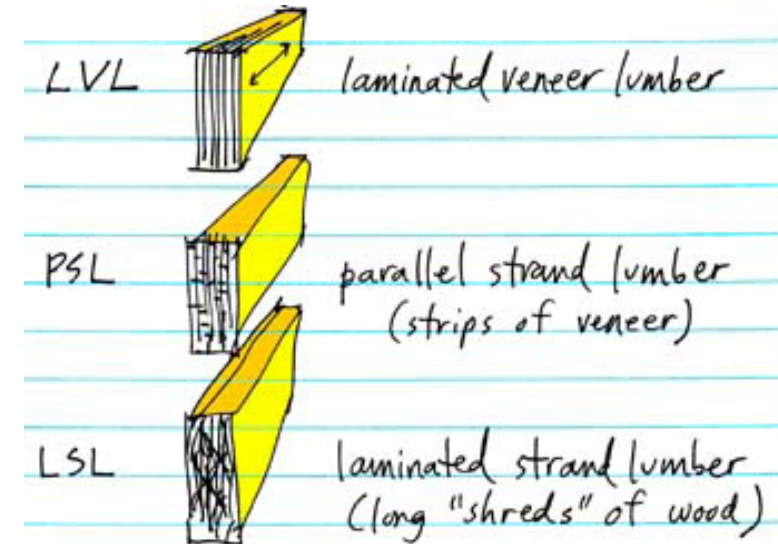 LVL laminated veneer lumber
PSL parallel strand lumber
(strips of veneer)
LSL laminated strand lumber
(long "shreds" of wood)